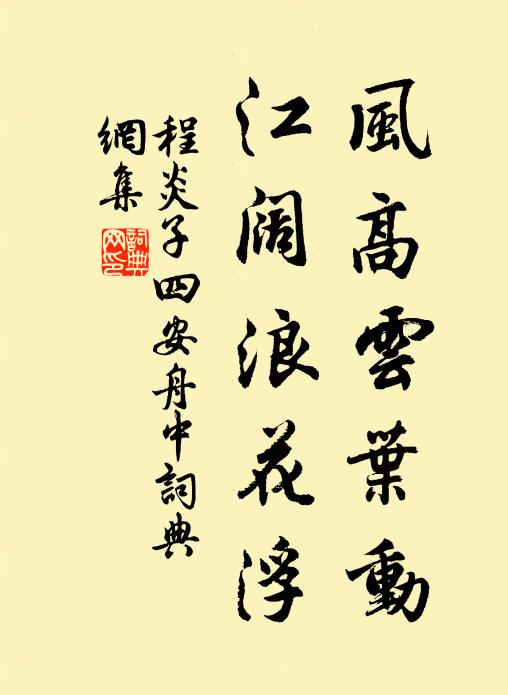 風高雲葉動
江阔浪花浮
程炎子四安舟中詞典
網集
詞典
网印